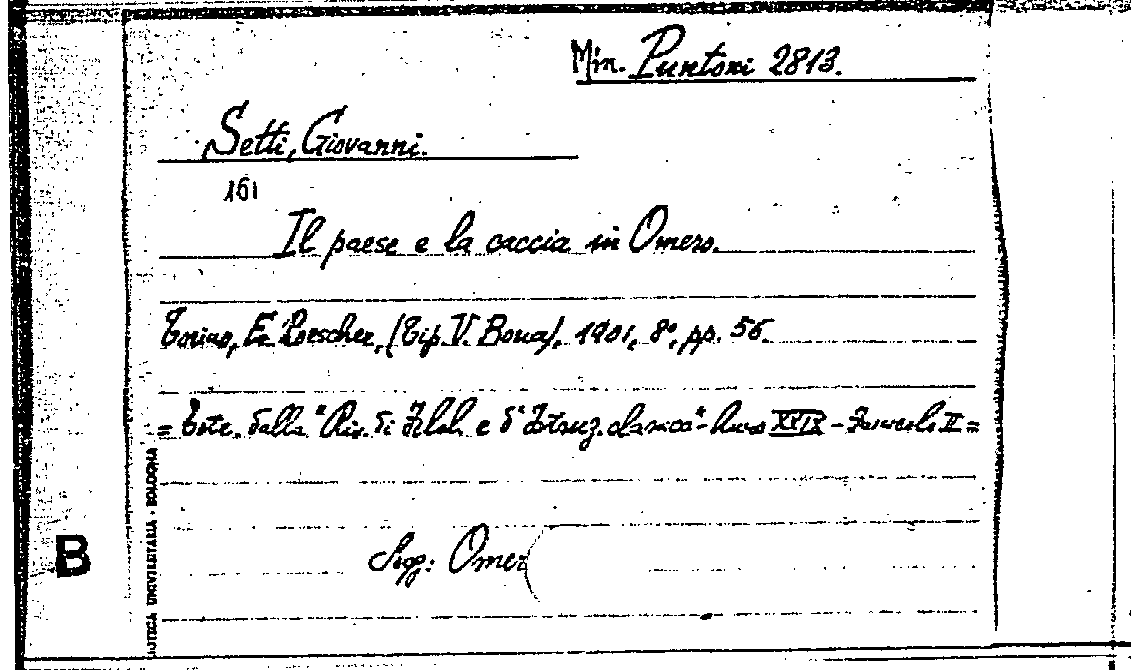 Min. Puntoni 2813.
Setti, Giovanni.
161
Il paese e la caccia in Omero.
Torino, E. Loescher, (Tip. V. Bona), 1901, 8°, pp. 56.
= Estr. dalla "Riv. di Filol. e d'Istruz. classica" - Anno XXIX - Fascicolo II =
Sog: Omer
B
UNIVERSITARIA - BOLOGNA